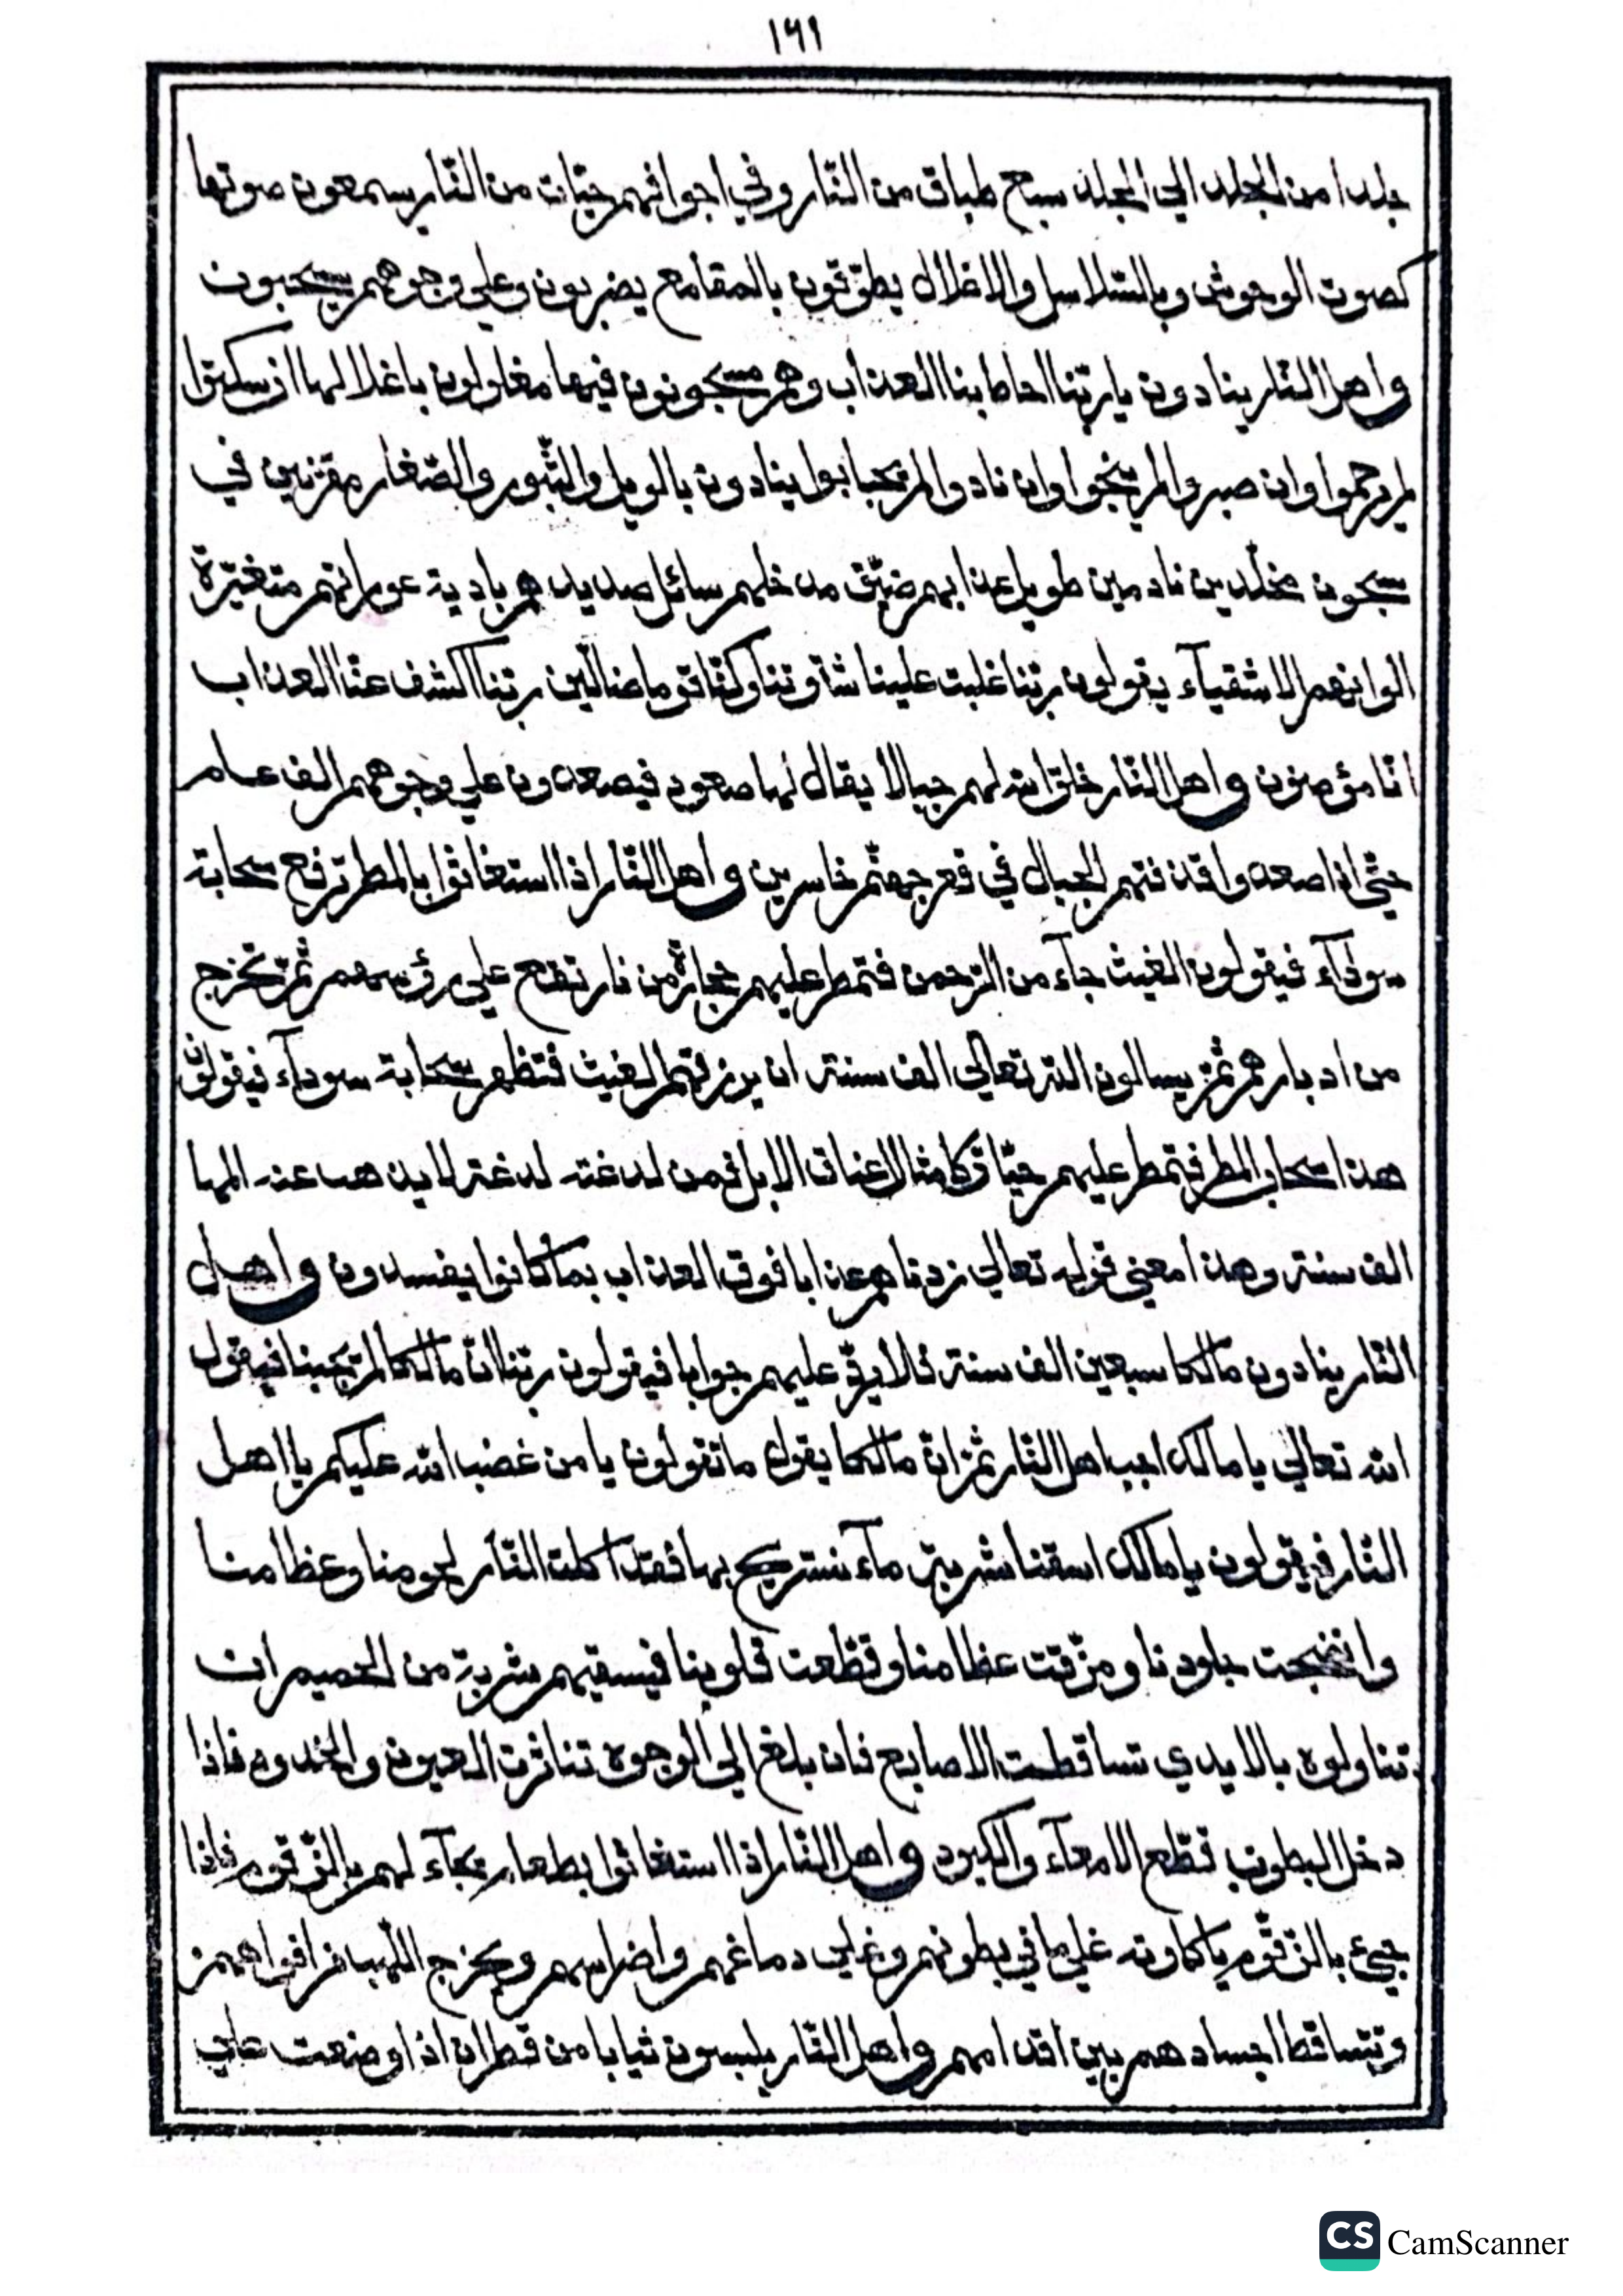 ١٦١
جلدا من الجلد الي الجلد سبع طباق من النّار وفي اجوافهم حيّات من النّار يسمعون صوتها
كصوت الوحوش وبالسّلاسل والاغلال يطوّقون بالمقامع يضربون وعلي وجوههم يسحبون
واهل النّار ينادون ياربّنا احاط بنا العذاب وهم مسجونون فيها مغلولون باغلالها ان سكتوا
لم يرحموا وان صبروا لم ينجوا وان نادوا لم يجابوا ينادون بالويل والثّبور والصّغار مقرّنين في
سجون مخلّدين نادمين طويل عذابهم ضيّق مدخلهم سائل صديدهم بادية عوراتهم متغيّرة
الوانهم الاشقيآء يقولون ربّنا غلبت علينا شقوتنا وكنّا قوما ضالّين ربّنا اكشف عنّا العذاب
انّا مؤمنون واهل النّار خلق الله لهم جبالا يقال لها صعود فيصعدون علي وجوههم الف عام
حتّي اذا صعدوا قذفتهم الجبال في قعر جهنّم خاسرين واهل النّار اذا استغاثوا بالمطر ترفع سحابة
سودآء فيقولون الغيث جآء من الرّحمن فتمطر عليهم حجارة من نار تقع علي رؤسهم ثمّ تخرج
من ادبارهم ثمّ يسالون الله تعالي الف سنة ان يرزقهم الغيث فتظهر سحابة سودآء فيقولون
هذا سحاب المطر فتمطر عليهم حيّات كامثال اعناق الابل فمن لدغته لدغة لا يذهب عنه المها
الف سنة وهذا معني قوله تعالي زدناهم عذابا فوق العذاب بما كانوا يفسدون واهل
النّار ينادون مالكا سبعين الف سنة فلا يردّ عليهم جوابا فيقولون ربّنا انّ مالكا لم يجبنا فيقول
الله تعالي يا مالك اجب اهل النّار ثمّ انّ مالكا يقول ما تقولون يا من غضب الله عليكم يا اهل
النّار فيقولون يا مالك اسقنا شربة مآء نستريح بها فقد اكلت النّار لحومنا وعظامنا
وانضجت جلودنا ومزّقت عظامنا وقطّعت قلوبنا فيسقيهم شربة من الحميم ان
تناولوه بالايدي تساقطت الاصابع فان بلغ الي الوجوه تناثرت العيون والخدود فاذا
دخل البطون قطّع الامعآء والكبود واهل النّار اذا استغاثوا بطعام يجآء لهم بالزّقّوم فاذا
جيئ بالزّقّوم ياكلونه غلي ما في بطونهم وغلي دماغهم واضراسهم ويخرج اللّهب من افواههم
وتتساقط اجسادهم بين اقدامهم واهل النّار يلبسون ثيابا من قطران اذا وضعت علي
CS CamScanner